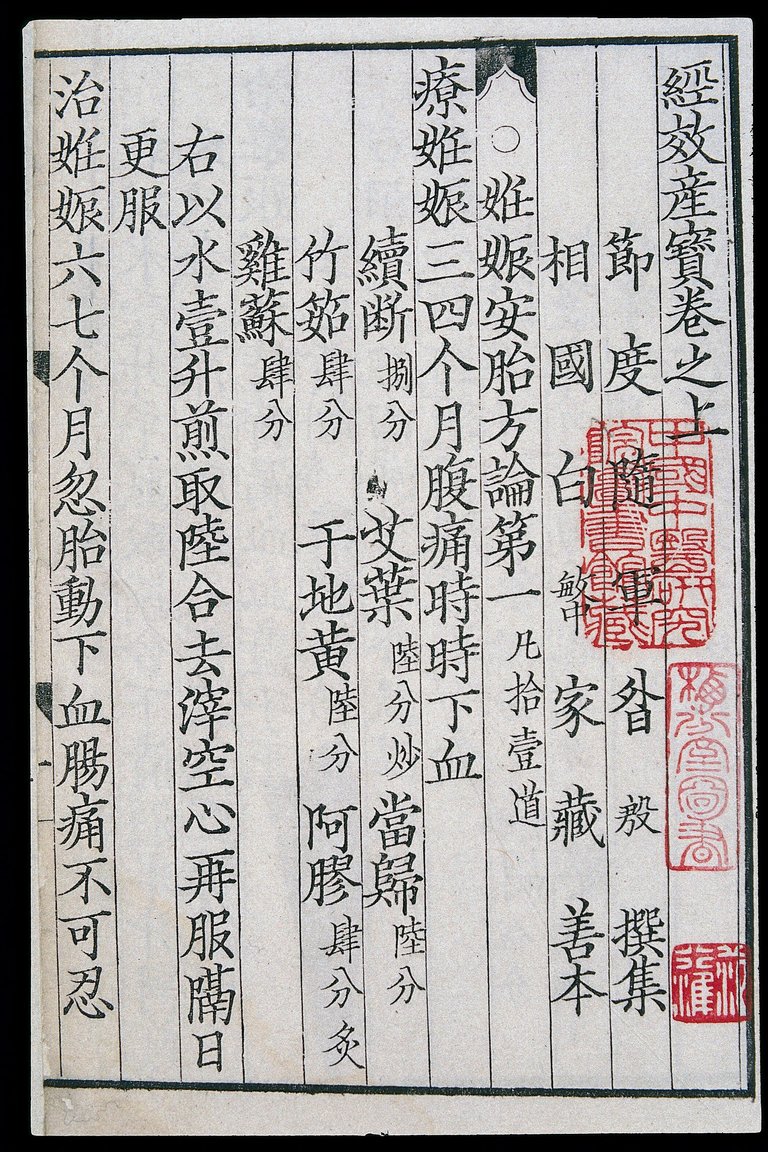 經效産寶卷之上
節度隨軍昝殷撰集
相國白敏中家藏善本
〇妊娠安胎方論第一凡拾壹道
療妊娠三四个月腹痛時時下血
續断捌分 艾葉陸分炒 當歸陸分
竹筎肆分 干地黃陸分 阿膠肆分炙
雞蘇肆分
右以水壹升煎取陸合去滓空心再服隔日
更服
治妊娠六七个月忽胎動下血腸痛不可忍
中國中醫研究院圖書館藏